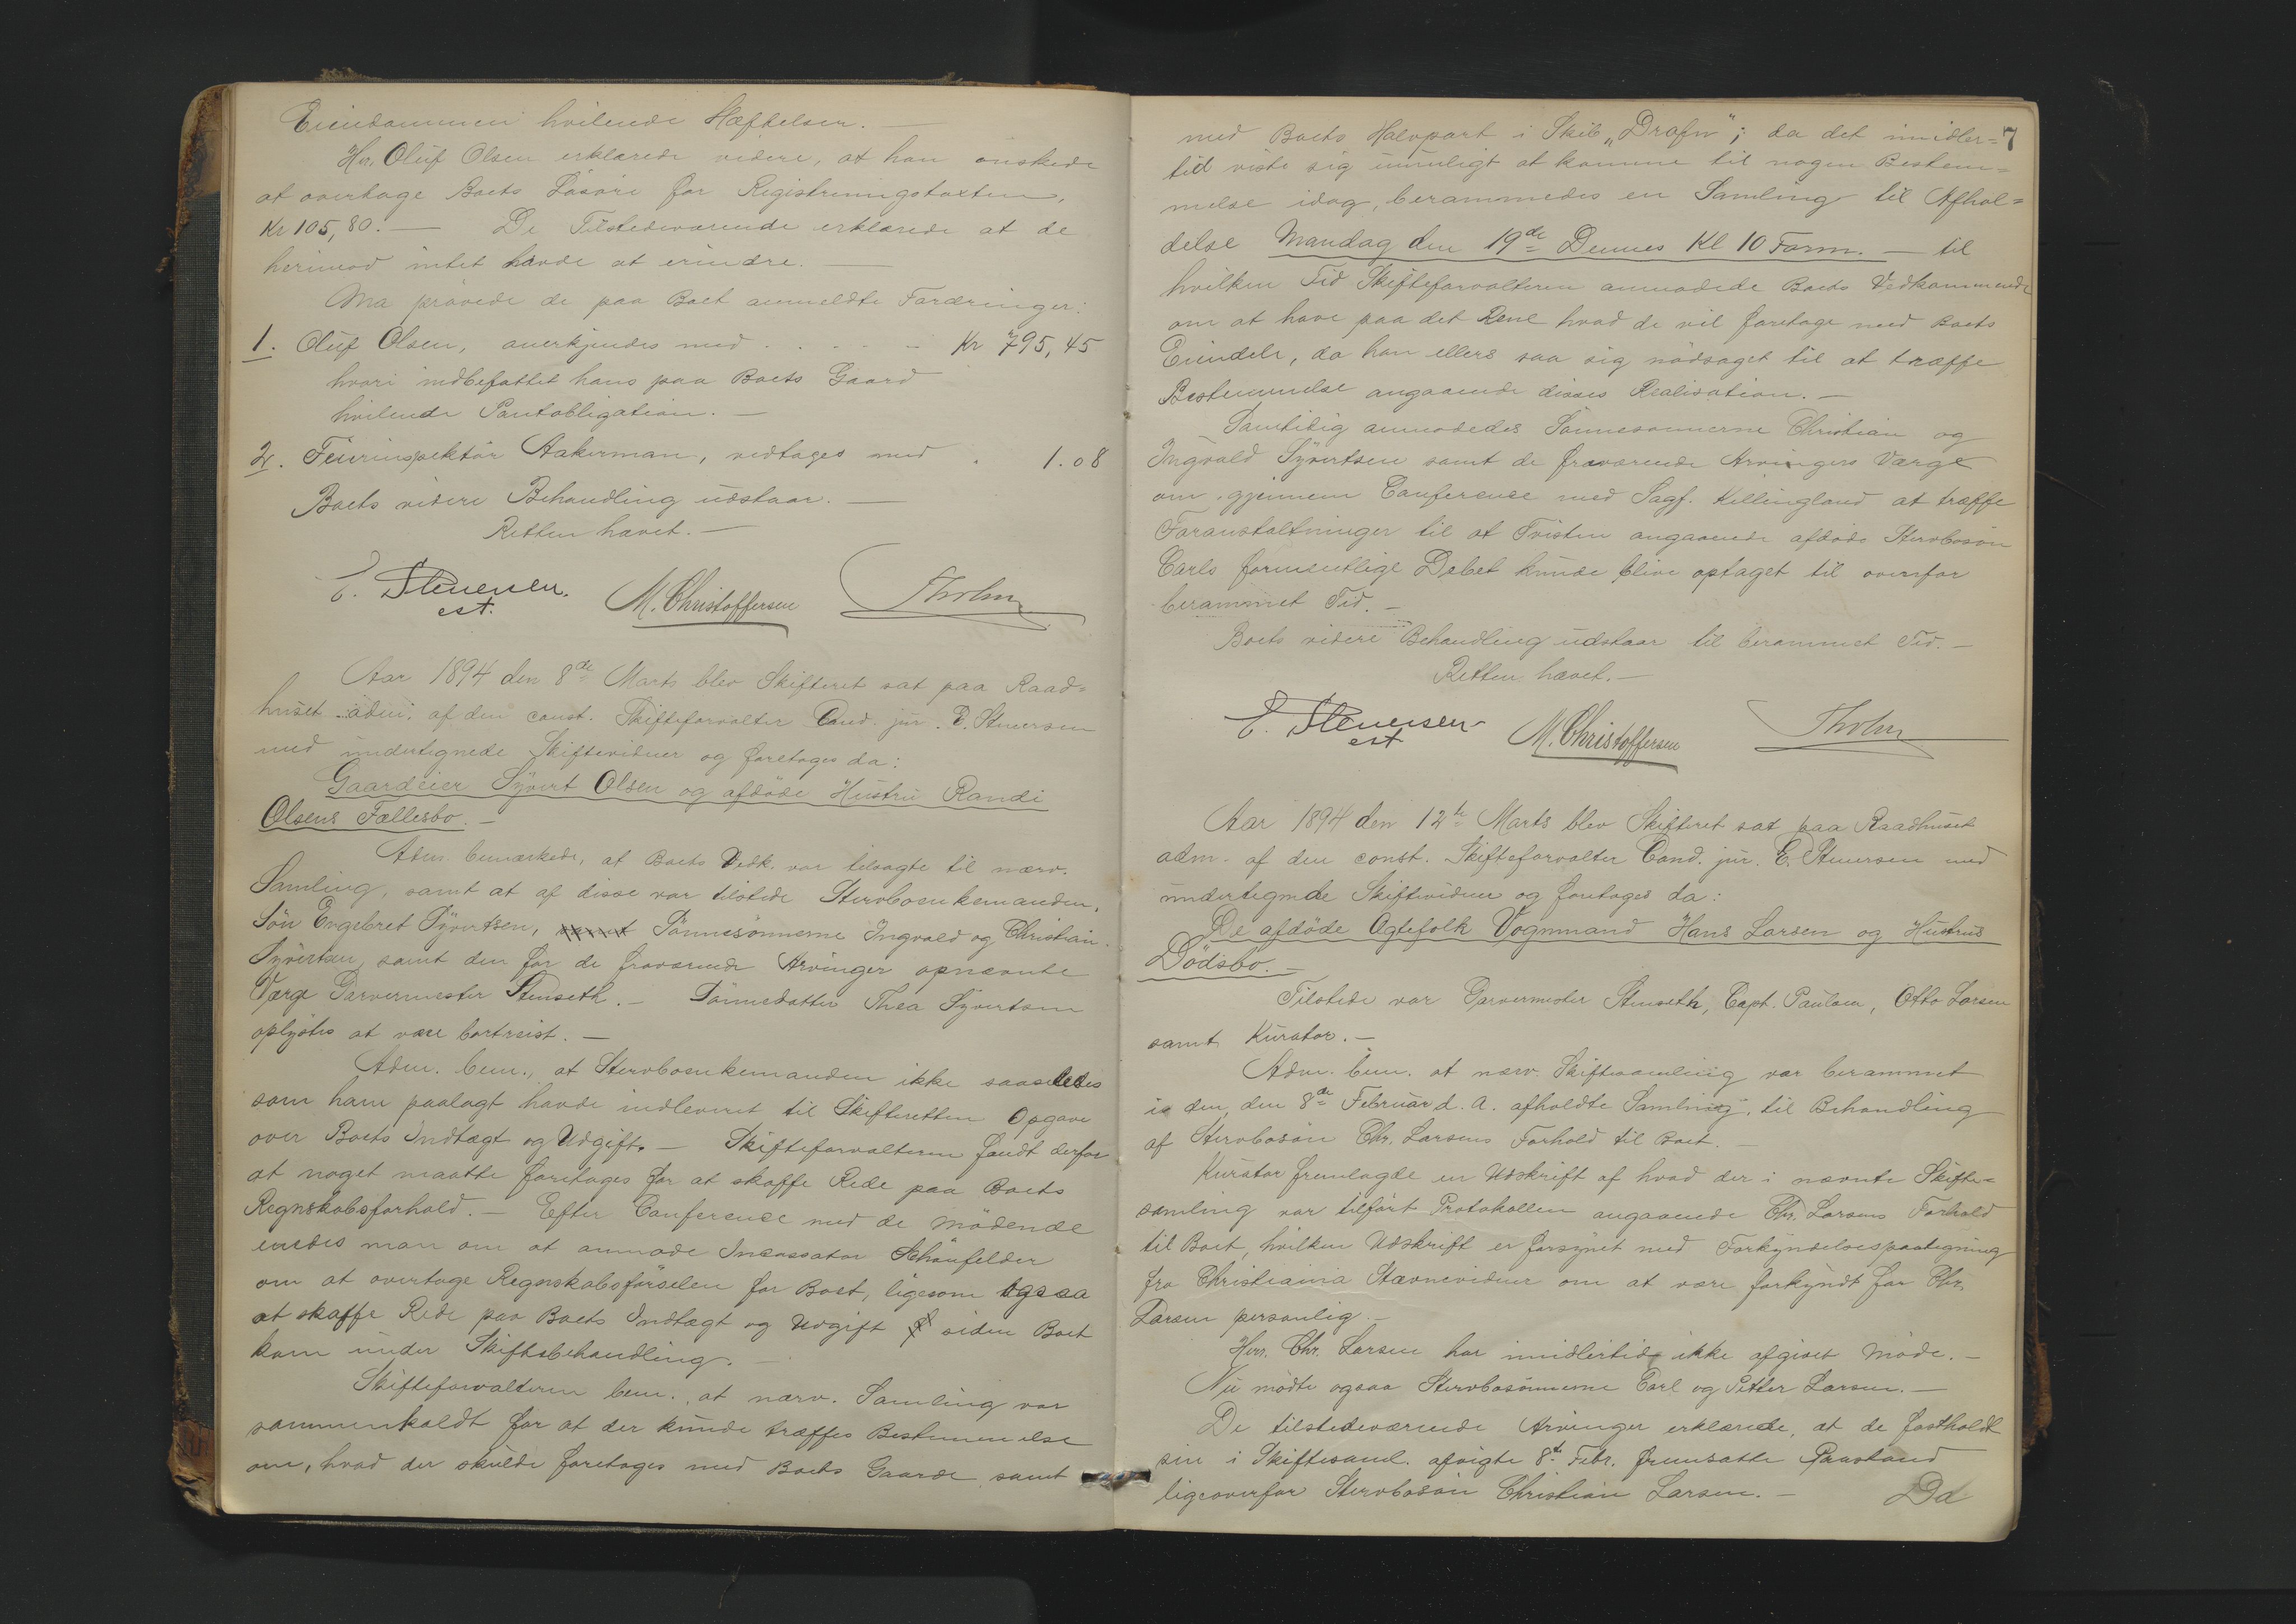 Eiendommen hvilende Hæftelser. —
Hr. Oluf Olsen erklærede videre, at han ønskede
at overtage Boets Løsøre for Registreringstaxten,
Kr 105,80. — De Tilstedeværende erklærede at de
herimod intet havde at erindre. —
Man prøvede de paa Boet anmeldte Fordringer:
1. Oluf Olsen, anerkjendes med . . . . . Kr 795,45
hvori indbefattet hans paa Boets Gaard
hvilende Pantobligation. —
2. Feierinspektør Aakerman, vedtages med . 1.08
Boets videre Behandling udstaar. —
Retten hævet. —
E. Stenersen. M. Christoffersen Tholm
cst.
Aar 1894 den 8de Marts blev Skifteret sat paa Raad=
huset adm. af den const. Skifteforvalter Cand. jur. E. Stenersen
med undertegnede Skiftevidner og foretoges da:
Gaardeier Syvert Olsen og afdøde Hustru Randi
Olsens Fællesbo. —
Adm. bemærkede, at Boets Vedk. var tilsagte til nærv.
Samling, samt at af disse var tilstede Stervboenkemanden,
Søn Engebret Syvertsen, Sønnesønnerne Ingvald og Christian
Syvertsen, samt den for de fraværende Arvinger opnævnte
Værge Garvermester Stenseth. — Sønnedatter Thea Syvertsen
oplystes at være bortreist. —
Adm. bem., at Stervboenkemanden ikke saaledes
som ham paalagt havde indleveret til Skifteretten Opgave
over Boets Indtægt og Udgift. — Skifteforvalteren fandt derfor
at noget maatte foretages for at skaffe Rede paa Boets
Regnskabsforhold. — Efter Conference med de mødende
enedes man om at anmode Incassator Schönfelder
om at overtage Regnskabsførselen for Boet, ligesom ogsaa
at skaffe Rede paa Boets Indtægt og Udgift siden Boet
kom under Skiftebehandling. —
Skifteforvalteren bem. at nærv. Samling var
sammenkaldt for at der kunde træffes Bestemmelse
om, hvad der skulde foretages med Boets Gaarde samt
7
med Boets Halvpart i Skib „Drafn"; da det imidler=
tid viste sig umuligt at komme til nogen Bestem=
melse idag, berammedes en Samling til Afhol=
delse Mandag den 19de Dennes Kl 10 Form. — til
hvilken Tid Skifteforvalteren anmodede Boets Vedkommende
om at have paa det Rene hvad de vil foretage med Boets
Eiendele, da han ellers saa sig nødsaget til at træffe
Bestemmelse angaaende disses Realisation. —
Samtidig anmodedes Sønnesønnerne Christian og
Ingvald Syvertsen samt de fraværende Arvingers Værge
om gjennem Conference med Sagf. Killingland at træffe
Foranstaltninger til at Tvisten angaaende afdøde Stervbosøn
Carls formentlige Debet kunde blive optaget til ovenfor
berammet Tid. —
Boets videre Behandling udstaar til berammet Tid. —
Retten hævet. —
E. Stenersen M. Christoffersen Tholm
cst
Aar 1894 den 12te Marts blev Skifteret sat paa Raadhuset
adm. af den const. Skifteforvalter Cand. jur. E. Stenersen med
undertegnede Skiftevidner og foretoges da:
De afdøde Ægtefolk Vognmand Hans Larsen og Hustrus
Dødsbo. —
Tilstede var Garvermester Stenseth, Capt. Paulsen, Otto Larsen
samt Kurator. —
Adm. bem. at nærv. Skiftesamling var berammet
i den, den 8de Februar d. A. afholdte Samling, til Behandling
af Stervbosøn Chr. Larsens Forhold til Boet. —
Kurator fremlagde en Udskrift af hvad der i nævnte Skifte=
samling var tilført Protokollen angaaende Chr. Larsens Forhold
til Boet, hvilken Udskrift er forsynet med Forkyndelsespaategning
fra Christiania Stævnevidner om at være forkyndt for Chr.
Larsen personlig. —
Herr. Chr. Larsen har imidlertid ikke afgivet Møde. —
Nu mødte ogsaa Stervbosønnerne Carl og Petter Larsen. —
De tilstedeværende Arvinger erklærede, at de fastholdt
sin i Skiftesaml. afvigte 8de Febr. fremsatte Paastand
ligeoverfor Stervbosøn Christian Larsen. — Da